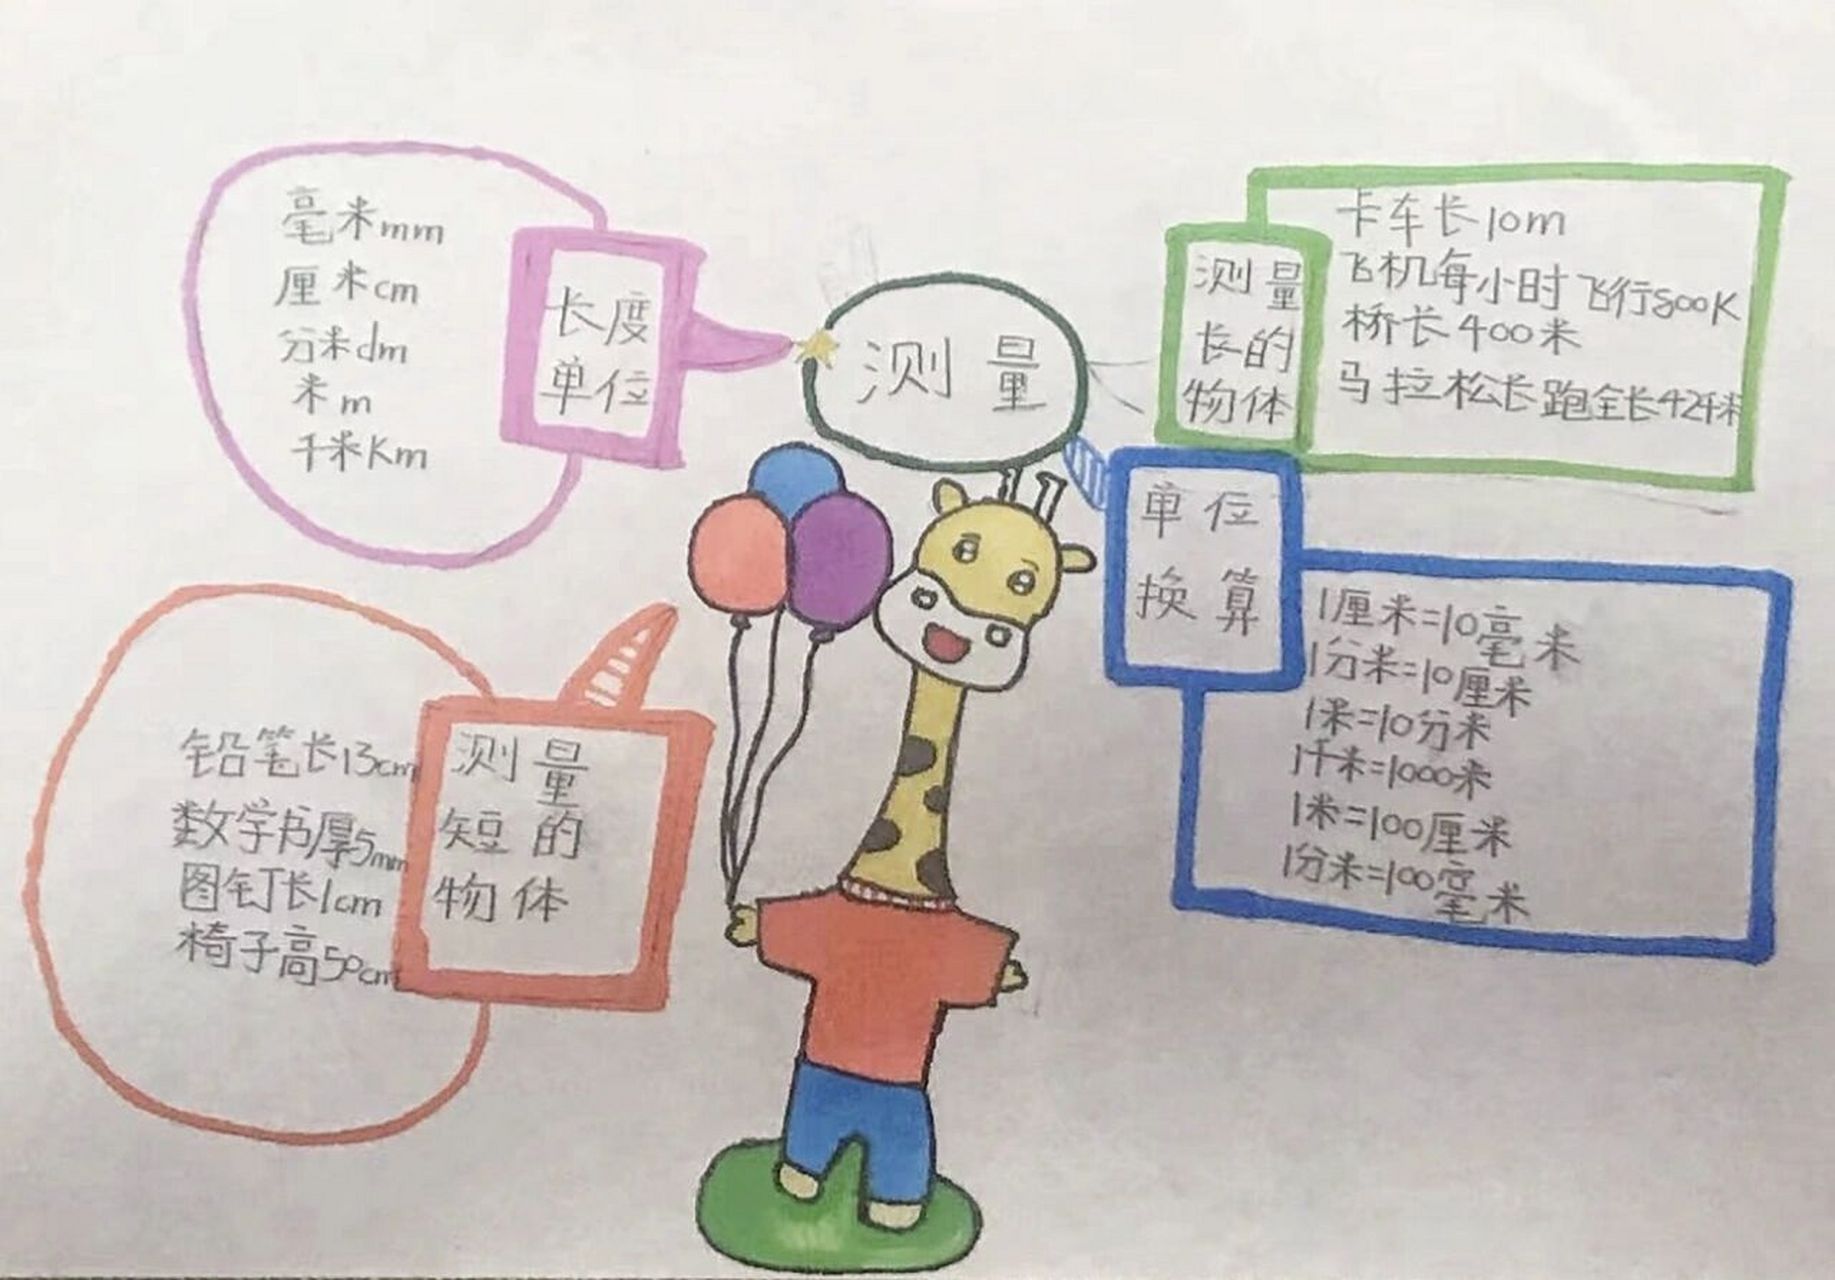 测量
长度
单位
毫米mm
厘米cm
分米dm
米m
千米Km
测量
长的
物体
卡车长10m
飞机每小时飞行800K
桥长400米
马拉松长跑全长42千米
单位
换算
1厘米=10毫米
1分米=10厘米
1米=10分米
1千米=1000米
1米=100厘米
1分米=100毫米
测量
短的
物体
铅笔长13cm
数学书厚5mm
图钉长1cm
椅子高50cm